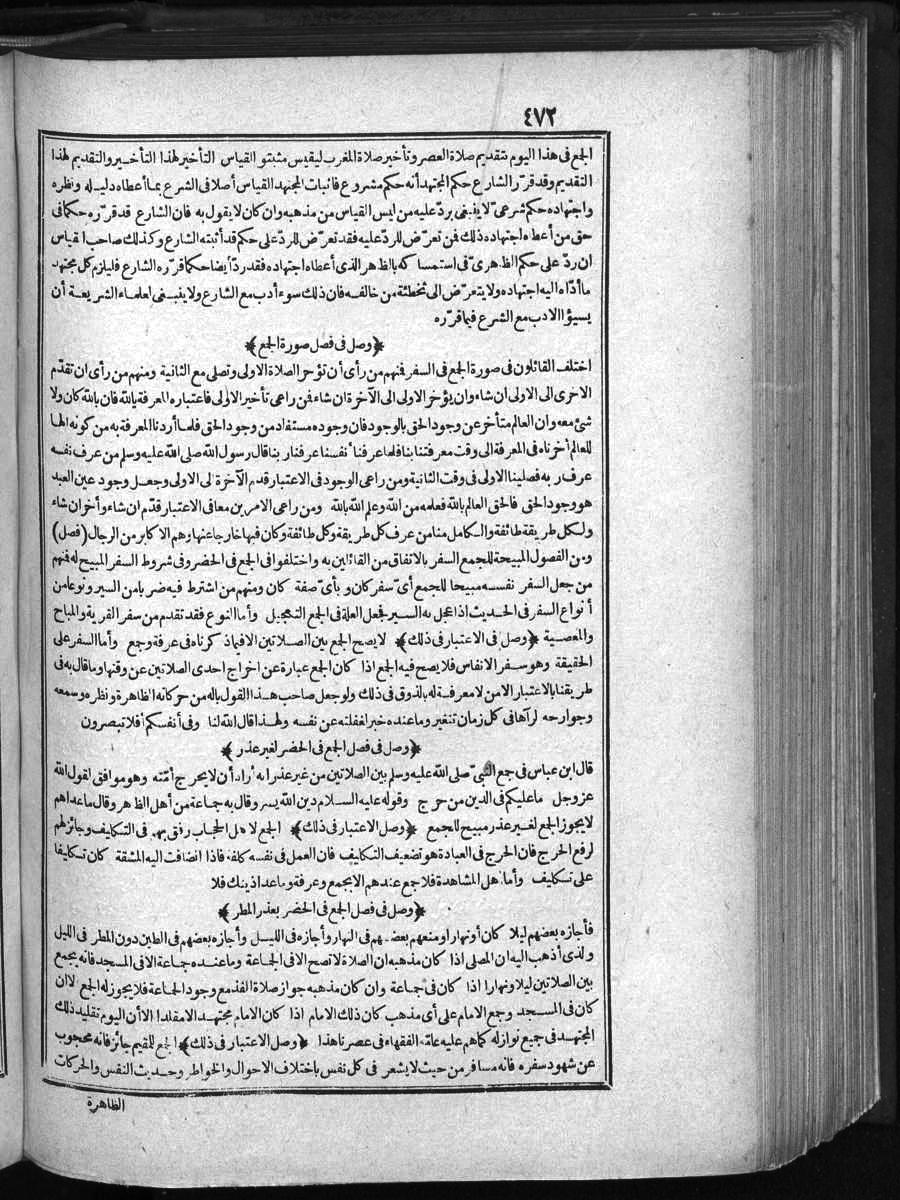 ٤٧٢
الجمع فى هذا اليوم بتقديم صلاة العصر وتأخير صلاة المغرب ليقيس مثبتو القياس التأخير لهذا التأخير والتقديم لهذا
التقديم وقد قرّر الشارع حكم المجتهد أنه حكم مشروع فاثبات المجتهد القياس أصلا فى الشرع بما أعطاه دليله ونظره
واجتهاده حكم شرعىّ لا ينبغى يردّ عليه من ليس القياس من مذهبه وان كان لا يقول به فان الشارع قد قرّره حكما فى
حق من أعطاه اجتهاده ذلك فمن تعرّض للردّ عليه فقد تعرّض للردّ على حكم قد أثبته الشارع وكذلك صاحب القياس
ان ردّ على حكم الظاهرىّ فى استمساكه بالظاهر الذى أعطاه اجتهاده فقد ردّ أيضا حكما قرّره الشارع فليلزم كل مجتهد
ما أدّاه اليه اجتهاده ولا يتعرّض الى تخطئة من خالفه فان ذلك سوء أدب مع الشارع ولا ينبغى لعلماء الشريعة أن
يسيؤا الادب مع الشرع فيما قرّره
﴿وصل فى فصل صورة الجمع﴾
اختلف القائلون فى صورة الجمع فى السفر فمنهم من رأى أن تؤخر الصلاة الاولى وتصلى مع الثانية ومنهم من رأى ان تقدّم
الاخرى الى الاولى ان شاء وان يؤخر الاولى الى الآخرة ان شاء فمن راعى تأخير الاولى فاعتباره المعرفة بالله فان بالله كان ولا
شئ معه وان العالم متأخر عن وجود الحق بالوجود فان وجوده مستفاد من وجود الحق فلما أردنا المعرفة به من كونه الها
للعالم أخرناه فى المعرفة الى وقت معرفتنا بنا فلما عرفنا أنفسنا عرفنا ربنا قال رسول الله صلى الله عليه وسلم من عرف نفسه
عرف ربه فصلينا الاولى فى وقت الثانية ومن راعى الوجود فى الاعتبار قدم الآخرة الى الاولى وجعل وجود عين العبد
هو وجود الحق فالحق العالم بالله فعلمه من الله وعلم الله بالله ومن راعى الامرين معا فى الاعتبار قدّم ان شاء وأخر ان شاء
ولكل طريقة طائفة والكامل منا من عرف كل طريقة وكل طائفة وكان فيها خارجا عنها وهم الاكابر من الرجال (فصل)
ومن الفصول المبيحة للجمع السفر بالاتفاق من القائلين به واختلفوا فى الجمع فى الحضر وفى شروط السفر المبيح له فمنهم
من جعل السفر نفسه مبيحا للجمع أىّ سفر كان وبأىّ صفة كان ومنهم من اشترط فيه ضربا من السير ونوعا من
أنواع السفر فى الحديث اذا عجل به السير فجعل العلة فى الجمع التعجيل وأما النوع فقد تقدم من سفر القربة والمباح
والمعصية ﴿وصل فى الاعتبار فى ذلك﴾ لا يصح الجمع بين الصلاتين الا فيما ذكرناه فى عرفة وجمع وأما السفر على
الحقيقة وهو سفر الانفاس فلا يصح فيه الجمع اذا كان الجمع عبارة عن اخراج احدى الصلاتين عن وقتها وما قال به فى
طريقنا بالاعتبار الا من لا معرفة له بالذوق فى ذلك ولو جعل صاحب هذا القول باله من حركاته الظاهرة ونظره وسمعه
وجوارحه لرآها فى كل زمان تتغير وما عنده خبر لغفلته عن نفسه ولهذا قال الله لنا وفى أنفسكم أفلا تبصرون
﴿وصل فى فصل الجمع فى الحضر لغير عذر﴾
قال ابن عباس فى جمع النبىّ صلى الله عليه وسلم بين الصلاتين من غير عذر انه أراد أن لا يحرج أمّته وهو موافق لقول الله
عز وجل ما عليكم فى الدين من حرج وقوله عليه السلام دين الله يسر وقال به جماعة من أهل الظاهر وقال ما عداهم
لا يجوز الجمع لغير عذر مبيح للجمع ﴿وصل الاعتبار فى ذلك﴾ الجمع لاهل الحجاب رفق بهم فى التكليف وجائز لهم
لرفع الحرج فان الحرج فى العبادة هو تضعيف التكليف فان العمل فى نفسه كلفة فاذا انضافت اليه المشقة كان تكليفا
على تكليف وأما أهل المشاهدة فلا جمع عندهم الا بجمع وعرفة وما عدا ذينك فلا
﴿وصل فى فصل الجمع فى الحضر بعذر المطر﴾
فأجازه بعضهم ليلا كان أو نهارا ومنعهم بعضهم فى النهار وأجازه فى الليل وأجازه بعضهم فى الطين دون المطر فى الليل
والذى أذهب اليه ان المصلى اذا كان مذهبه ان الصلاة لا تصح الا فى الجماعة وما عنده جماعة الا فى المسجد فانه يجمع
بين الصلاتين ليلا ونهارا اذا كان فى جماعة وان كان مذهبه جواز صلاة الفذ مع وجود الجماعة فلا يجوز له الجمع الا ان
كان فى المسجد وجمع الامام على أى مذهب كان ذلك الامام اذا كان الامام مجتهدا لا مقلدا الا أن اليوم تقليد ذلك
المجتهد فى جميع نوازله كما هم عليه عامّة الفقهاء فى عصرنا هذا ﴿وصل الاعتبار فى ذلك﴾ الجمع للمقيم جائز فانه محجوب
عن شهود سفره فانه مسافر من حيث لا يشعر فى كل نفس باختلاف الاحوال والخواطر وحديث النفس والحركات
الظاهرة